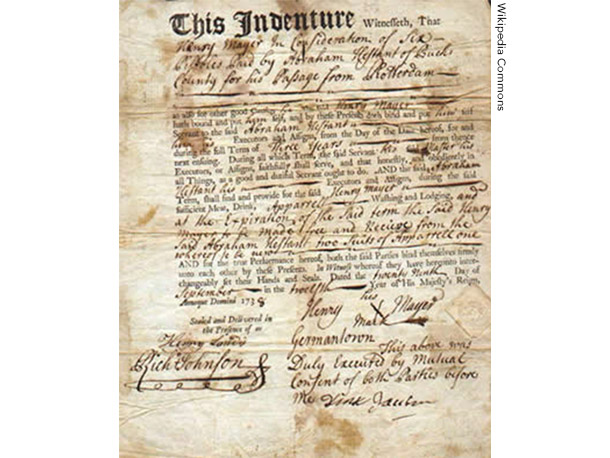 This Indenture Witnesseth, That
Henry Mayer In Consideration of Six
Pistoles Paid by Abraham Hestant of Bucks
County for his Passage from Rotterdam
as also for other good Causes he the said Henry Mayer
hath bound and put him self, and by these Presents doth bind and put him self
Servant to the said Abraham Hestant
Executors and Assigns, from the Day of the Date hereof, for and
during the full Term of Three Years from thence
next ensuing. During all which Term, the said Servant his said Master his
Executors, or Assigns, faithfully shall serve, and that honestly, and obediently in
all Things, as a good and dutiful Servant ought to do. AND the said Abraham
Hestant his Executors and Assigns, during the said
Term, shall find and provide for the said Henry Mayer
sufficient Meat, Drink, Apparrell Washing and Lodging, and
at the Expiration of the Said term the Said Henry
Mayer to be made free and Recieve from the
Said Abraham Hestant two Suits of Apparrell one
whereof to be new
AND for the true Performance hereof, both the said Parties bind themselves firmly
unto each other by these Presents. In Witness whereof they have hereunto inter-
changeably set their Hands and Seals. Dated the twenty Ninth Day of
September in the twelfth Year of His Majesty's Reign,
Annoque Domini 1738
Sealed and Delivered in
the Presence of us
Rich Johnson
Henry his Mayer
mark
Germantown
This above was
Duly Executed by Mutual
Consent of both Parties before
Me
Wikipedia Commons